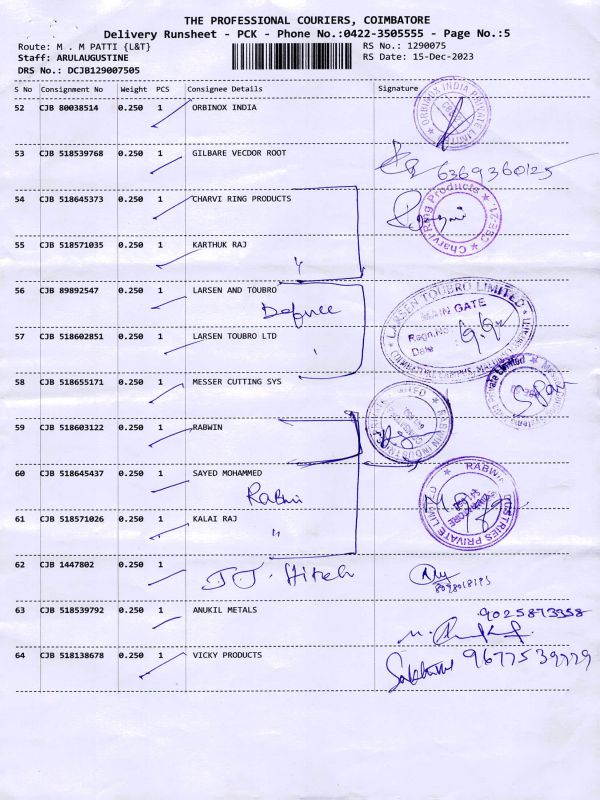 THE PROFESSIONAL COURIERS, COIMBATORE
Delivery Runsheet - PCK - Phone No.:0422-3505555 - Page No.:5
Route: M . M PATTI {L&T}
RS No.: 1290075
Staff: ARULAUGUSTINE
RS Date: 15-Dec-2023
DRS No.: DCJB129007505
S No Consignment No Weight PCS Consignee Details Signature
52 CJB 80038514 0.250 1 ORBINOX INDIA
ORBINOX INDIA PRIVATE LIMITED
53 CJB 518539768 0.250 1 GILBARE VECDOR ROOT
6369360125
54 CJB 518645373 0.250 1 CHARVI RING PRODUCTS
Charvi Ring Products
55 CJB 518571035 0.250 1 KARTHUK RAJ
56 CJB 89892547 0.250 1 LARSEN AND TOUBRO
LARSEN TOUBRO LIMITED
MAIN GATE
Regn.No
Date
57 CJB 518602851 0.250 1 LARSEN TOUBRO LTD
58 CJB 518655171 0.250 1 MESSER CUTTING SYS
59 CJB 518603122 0.250 1 RABWIN
RABWIN INDUSTRIES PRIVATE LIMITED
60 CJB 518645437 0.250 1 SAYED MOHAMMED
RABWIN INDUSTRIES PRIVATE LIMITED
61 CJB 518571026 0.250 1 KALAI RAJ
"
62 CJB 1447802 0.250 1
63 CJB 518539792 0.250 1 ANUKIL METALS
9025873358
64 CJB 518138678 0.250 1 VICKY PRODUCTS